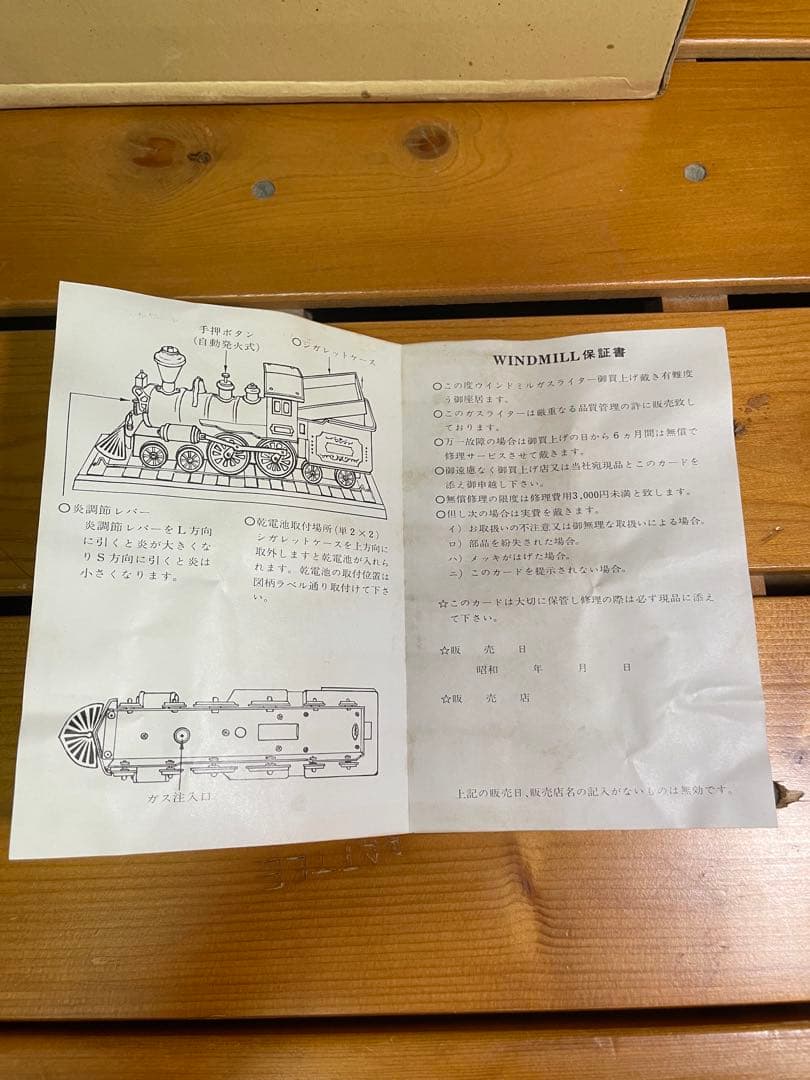 手押ボタン
(自動発火式)
○シガレットケース
○炎調節レバー
炎調節レバーをL方向
に引くと炎が大きくな
りS方向に引くと炎は
小さくなります。
○乾電池取付場所(単2×2)
シガレットケースを上方向に
取外しますと乾電池が入れら
れます。乾電池の取付位置は
図柄ラベル通り取付けて下さ
い。
ガス注入口
WINDMILL保証書
○この度ウインドミルガスライター御買上げ戴き有難度
う御座居ます。
○このガスライターは厳重なる品質管理の許に販売致し
ております。
○万一故障の場合は御買上げの日から6ヵ月間は無償で
修理サービスさせて戴きます。
○御遠慮なく御買上げ店又は当社宛現品とこのカードを
添え御申越し下さい。
○無償修理の限度は修理費用3,000円未満と致します。
○但し次の場合は実費を戴きます。
イ)お取扱いの不注意又は御無理な取扱いによる場合。
ロ)部品を紛失された場合。
ハ)メッキがはげた場合。
ニ)このカードを提示されない場合。
☆このカードは大切に保管し修理の際は必ず現品に添え
て下さい。
☆販売日
昭和 年 月 日
☆販売店
上記の販売日、販売店名の記入がないものは無効です。